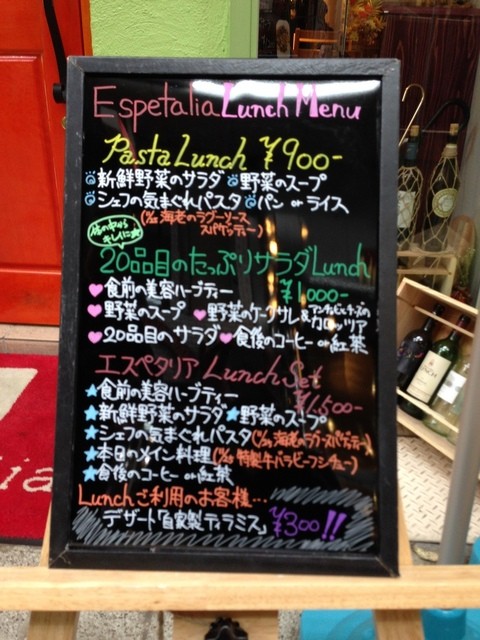 Espetalia Lunch Menu
Pasta Lunch ¥900-
新鮮野菜のサラダ 野菜のスープ
シェフの気まぐれパスタ パン or ライス
海老のラグーソース
スパゲッティー)
体の中から
キレイに
20品目のたっぷりサラダLunch
¥1,000-
食前の美容ハーブティー
野菜のスープ 野菜のケークサレ&アンチョビとチーズの
カロッツア
20品目のサラダ 食後のコーヒー or 紅茶
エスペタリア Lunch Set
¥1,500-
食前の美容ハーブティー
新鮮野菜のサラダ 野菜のスープ
シェフの気まぐれパスタ 海老のラグースパゲッティー)
本日のメイン料理 特製牛バラビーフシチュー)
食後のコーヒー or 紅茶
Lunchご利用のお客様…
デザート「自家製ティラミス」 ¥300!!
ia